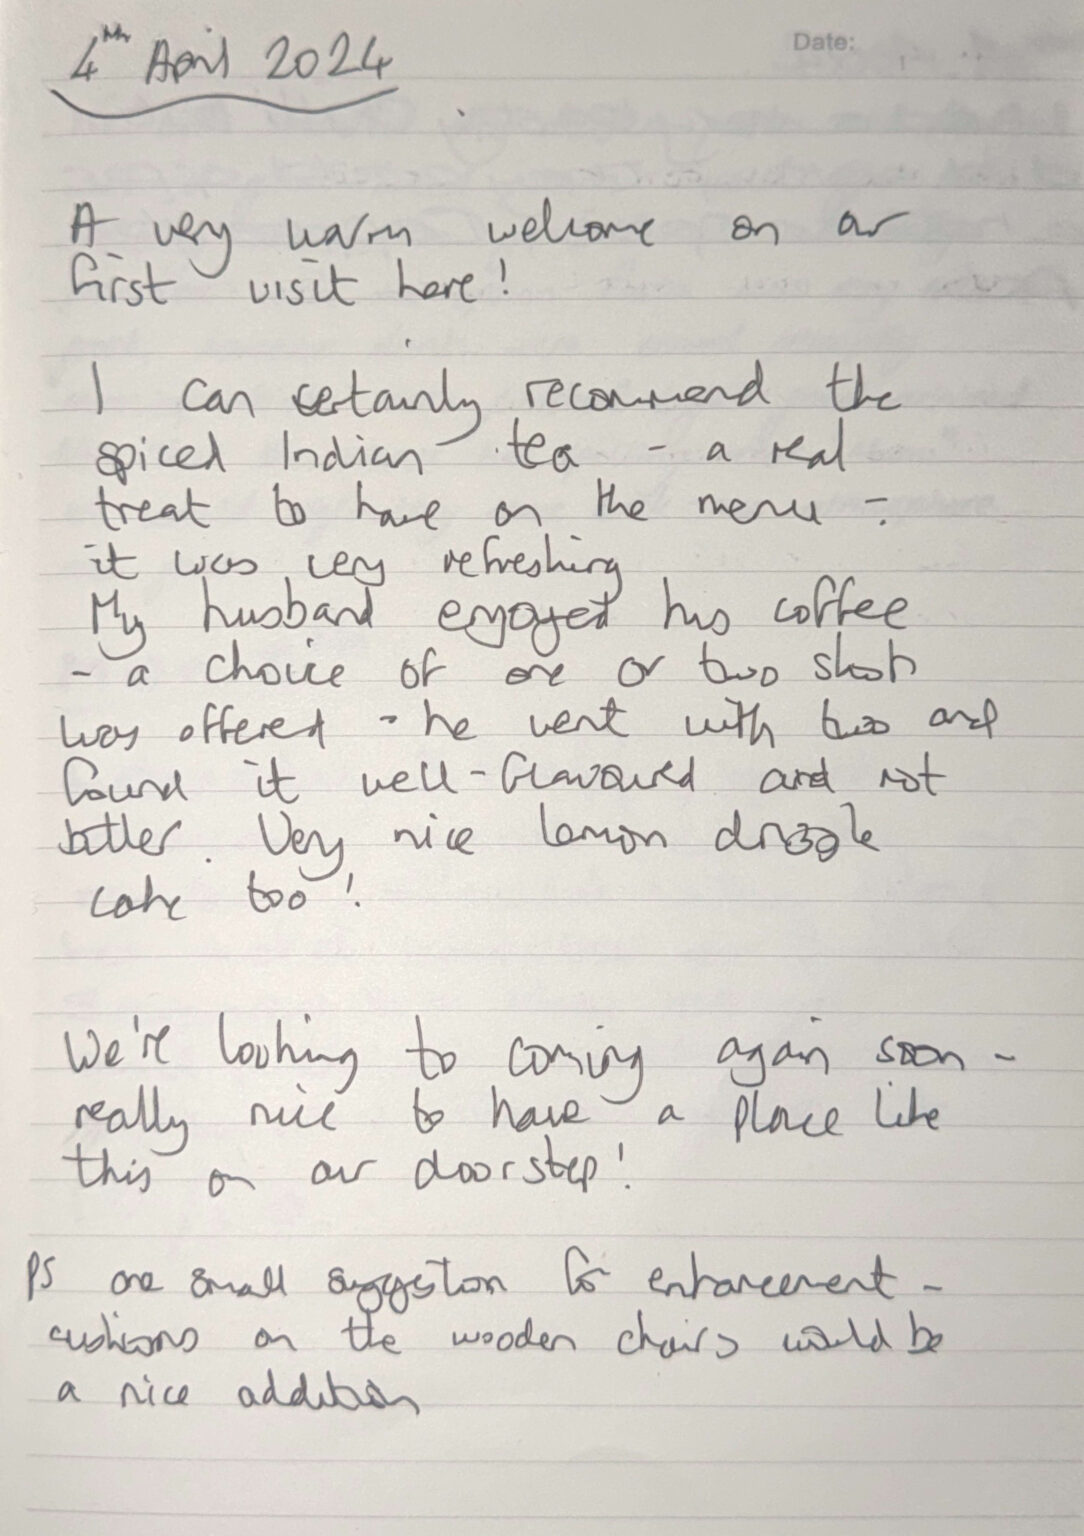 Date:
4th April 2024
A very warm welcome on our
first visit here!
I can certainly recommend the
spiced Indian tea - a real
treat to have on the menu -
it was very refreshing
My husband enjoyed his coffee
- a choice of one or two shots
was offered - he went with two and
found it well-flavoured and not
bitter. Very nice lemon drizzle
cake too!
We're looking to coming again soon -
really nice to have a place like
this on our doorstep!
PS one small suggestion for enhancement -
cushions on the wooden chairs would be
a nice addition